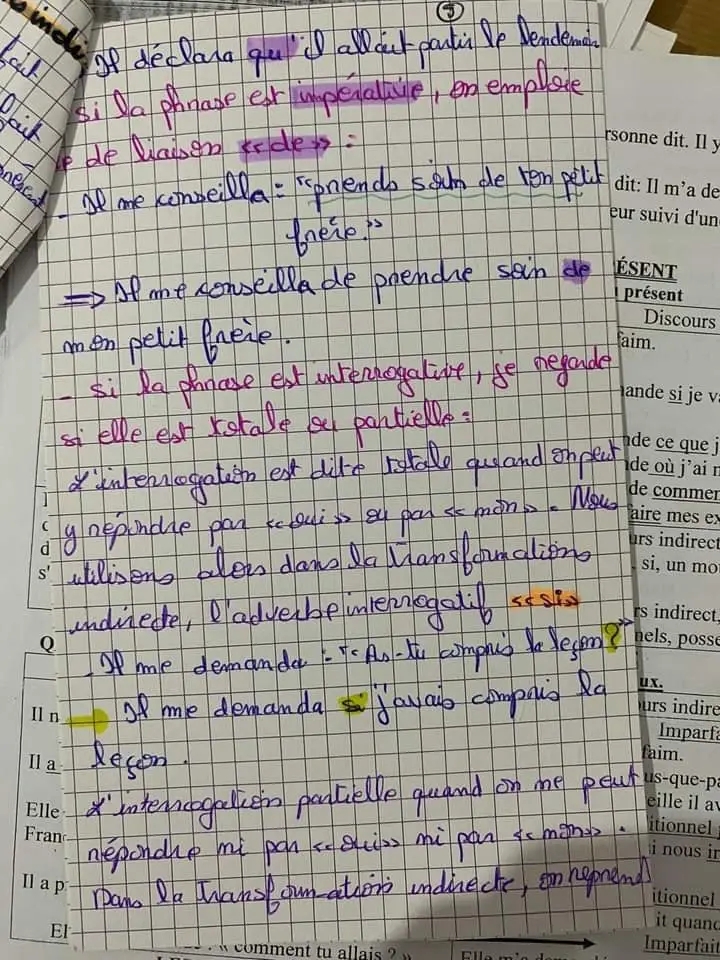 ③
Il déclara qu'il allait partir le lendemain
si la phrase est impérative, on emploie
de liaison «de» :
- Il me conseilla : "prends soin de ton petit
frère."
=> Il me conseilla de prendre soin de
mon petit frère.
- si la phrase est interrogative, je regarde
si elle est totale ou partielle :
L'interrogation est dite totale quand on peut
y répondre par «oui» ou par «non». Nous
utilisons alors dans la transformation
indirecte, l'adverbe interrogatif «si»
- Il me demanda : "As-tu compris la leçon?"
Il me demanda si j'avais compris la
leçon.
L'interrogation partielle quand on me peut
répondre ni par «oui» ni par «non».
Dans la transformation indirecte, on reprend
indi
fait
fait
rsonne dit. Il y
dit: Il m'a de
eur suivi d'un
ÉSENT
présent
Discours
faim.
ande si je v
nde ce que j
de où j'ai
de commen
faire mes ex
urs indirect
si, un mo
rs indirect,
nels, posse
ux.
urs indire
Imparfa
faim.
us-que-pa
eille il av
itionnel
i nous ir
itionnel
it quand
Imparfait
d
s'
Q
Il n
Il a
Elle
Fran
Il a p
El
« comment tu allais ? »
Elle m'a dem